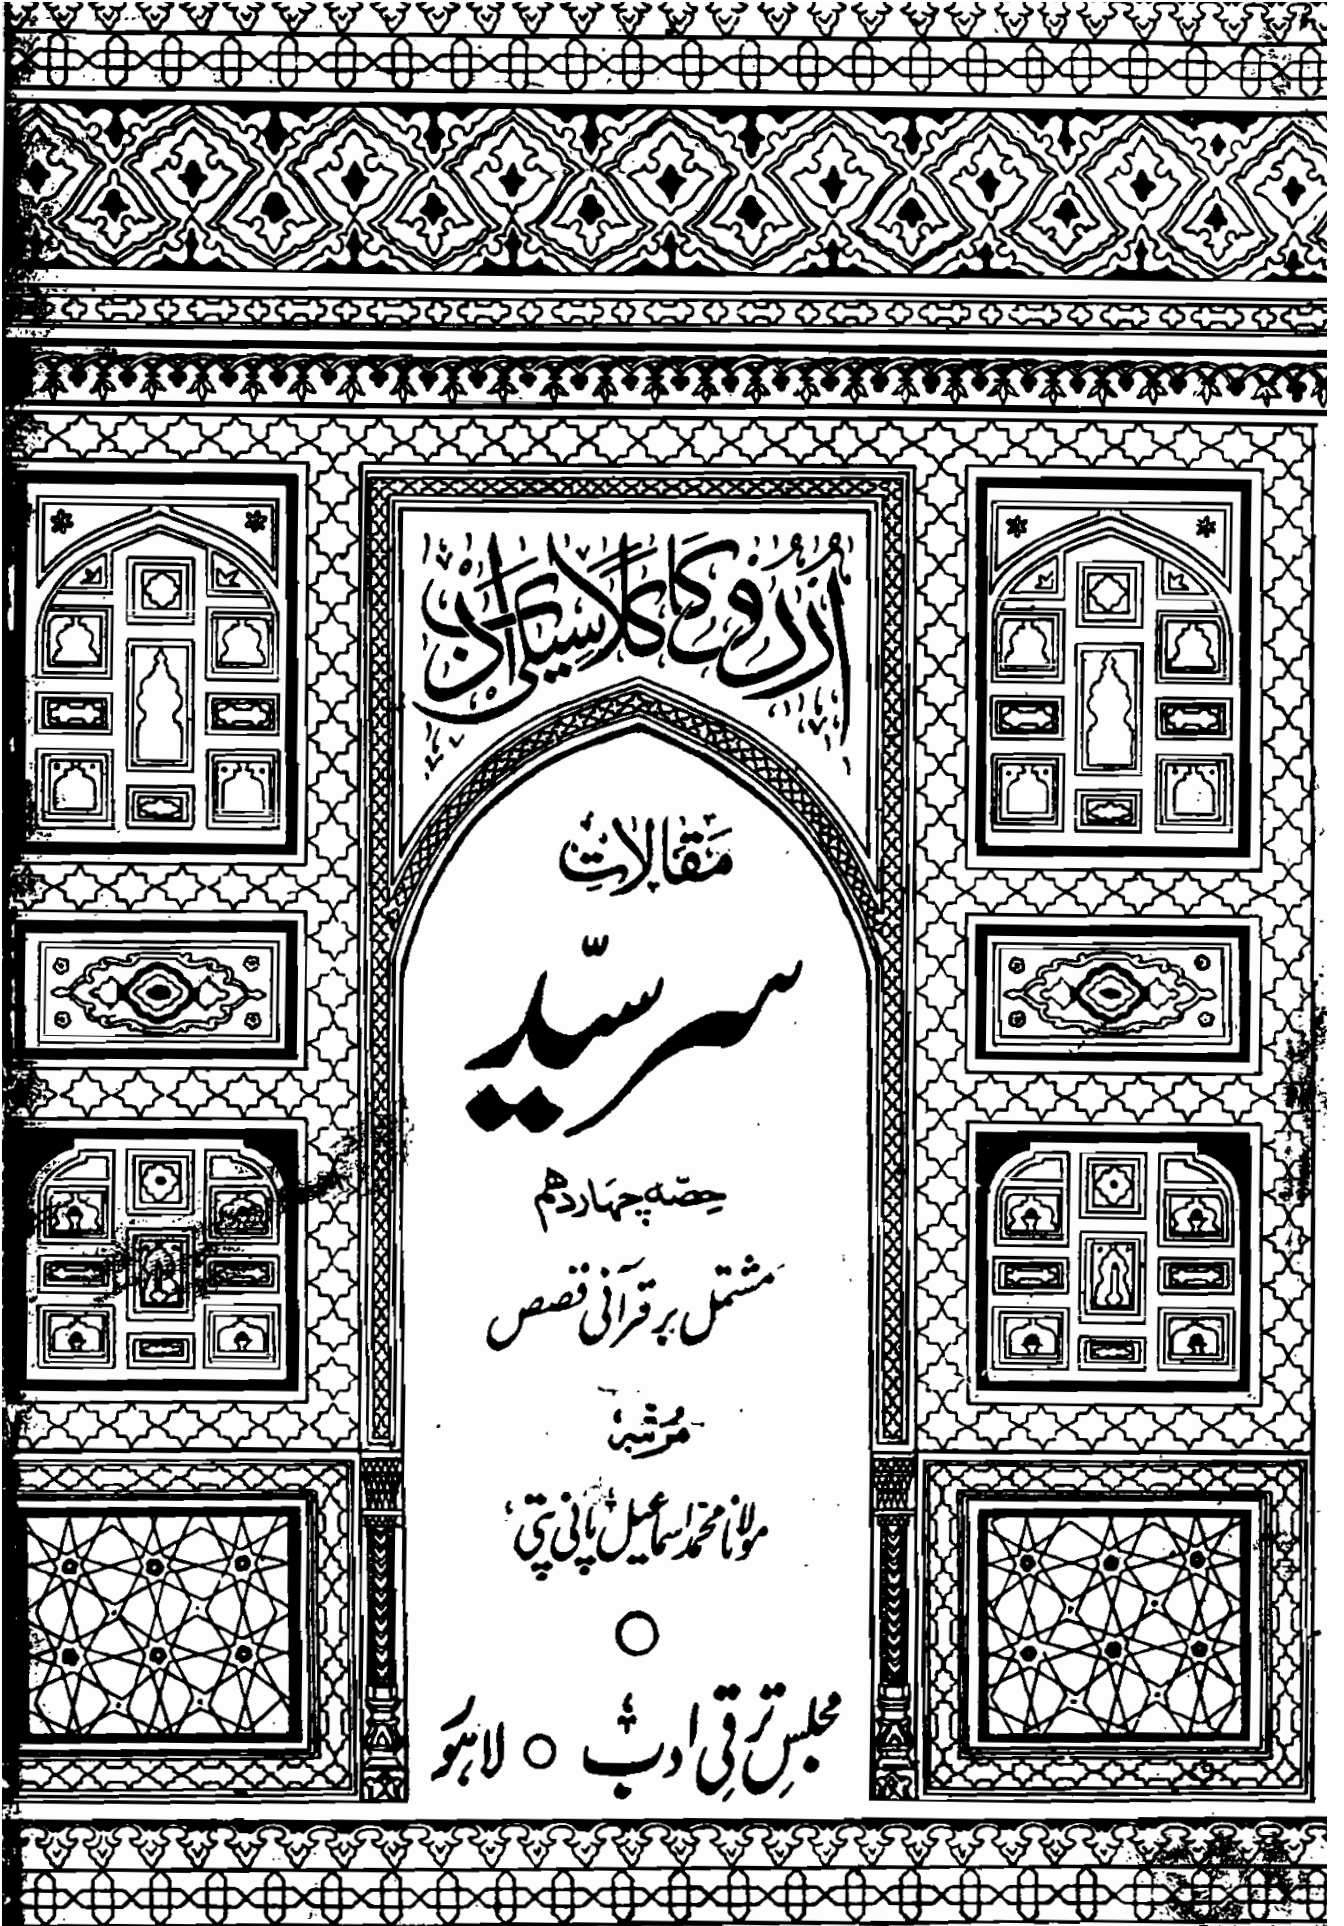 اُردو کا کلاسیکی ادب
مقالاتِ
سر سیّد
حصّہ چہاردہم
مشتمل بر قرآنی قصص
مُرتّبہ
مولانا محمّد اسماعیل پانی پتی
مجلسِ ترقیِ ادب ○ لاہور